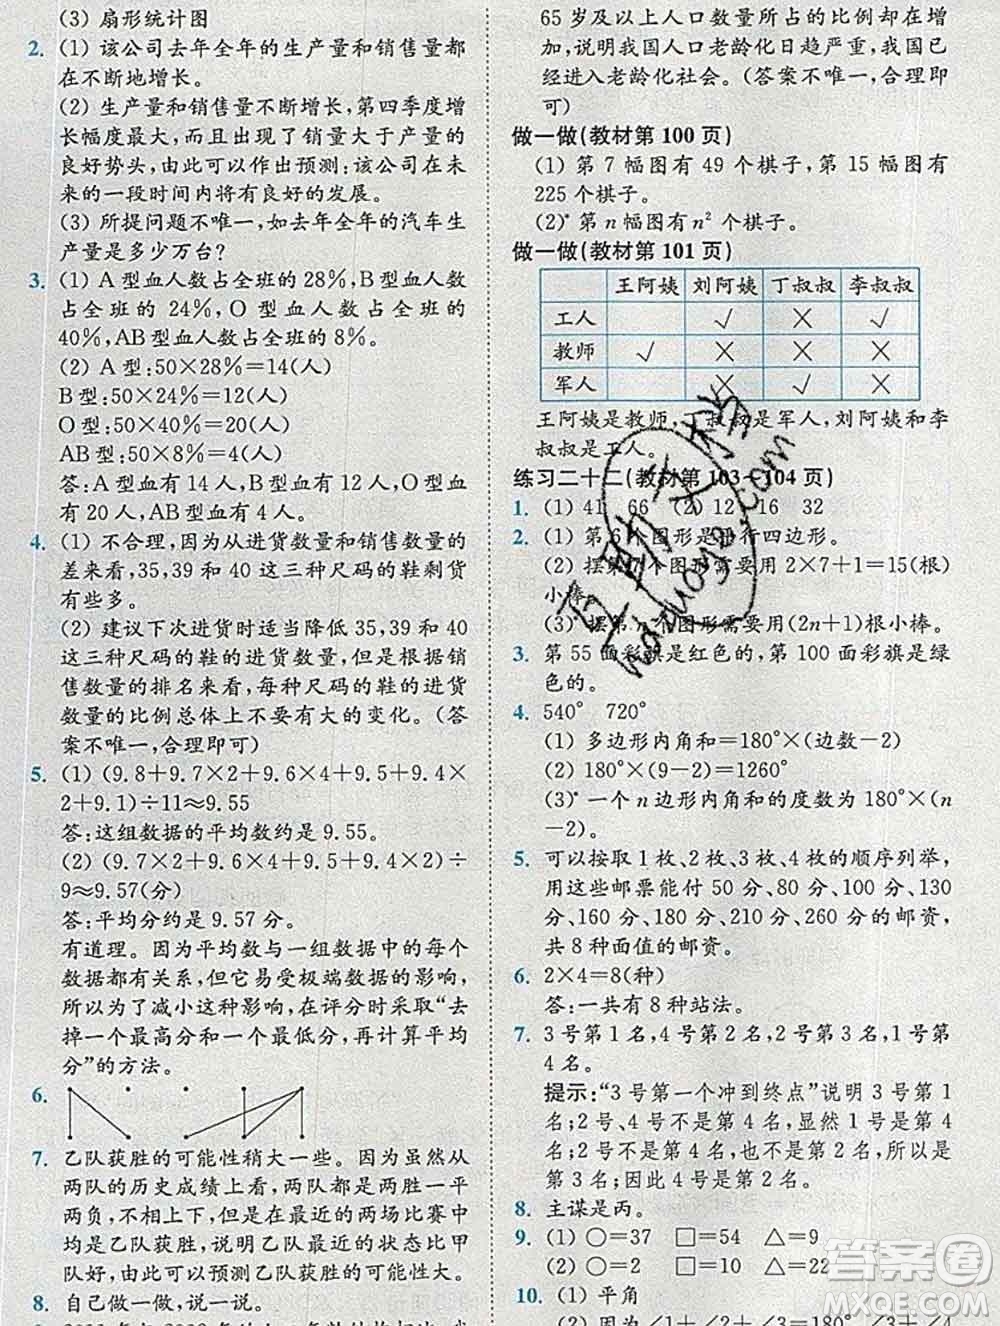 (3) 扇形统计图
2. (1) 该公司去年全年的生产量和销售量都
在不断地增长。
(2) 生产量和销售量不断增长，第四季度增
长幅度最大，而且出现了销量大于产量的
良好势头，由此可以作出预测：该公司在未
来的一段时间内将有良好的发展。
(3) 所提问题不唯一，如去年全年的汽车生
产量是多少万台？
3. (1) A 型血人数占全班的 28%，B 型血人数
占全班的 24%，O 型血人数占全班的
40%，AB 型血人数占全班的 8%。
(2) A 型：50×28%=14(人)
B 型：50×24%=12(人)
O 型：50×40%=20(人)
AB 型：50×8%=4(人)
答：A 型血有 14 人，B 型血有 12 人，O 型血
有 20 人，AB 型血有 4 人。
4. (1) 不合理，因为从进货数量和销售数量的
差来看，35，39 和 40 这三种尺码的鞋剩货
有些多。
(2) 建议下次进货时适当降低 35，39 和 40
这三种尺码的鞋的进货数量，但根据销
售数量的排名来看，每种尺码的鞋的进货
数量的比例总体上不要有大的变化。(答
案不唯一，合理即可)
5. (1) (9.8+9.7×2+9.6×4+9.5+9.4×
2+9.1)÷11≈9.55
答：这组数据的平均数约是 9.55。
(2) (9.7×2+9.6×4+9.5+9.4×2)÷
9≈9.57(分)
答：平均分约是 9.57 分。
有道理。因为平均数与一组数据中的每个
数据都有关系，但它易受极端数据的影响，
所以为了减小这种影响，在评分时采取“去
掉一个最高分和一个最低分，再计算平均
分”的方法。
6.
7. 乙队获胜的可能性稍大一些。因为虽然从
两队的历史成绩上看，两队都是两胜一平
两负，不相上下，但是在最近的两场比赛中
均是乙队获胜，说明乙队最近的状态比甲
队好，由此可以预测乙队获胜的可能性大。
8. 自己做一做，说一说。
65 岁及以上人口数量所占的比例却在增
加，说明我国人口老龄化日趋严重，我国已
经进入老龄化社会。(答案不唯一，合理即
可)
做一做(教材第 100 页)
(1) 第 7 幅图有 49 个棋子，第 15 幅图有
225 个棋子。
(2)* 第 n 幅图有 n² 个棋子。
做一做(教材第 101 页)
王阿姨 刘阿姨 丁叔叔 李叔叔
工人 √ × √
教师 √ × ×
军人 × √ ×
王阿姨是教师，丁叔叔是军人，刘阿姨和李
叔叔是工人。
练习二十二(教材第 103~104 页)
1. (1) 41 66 (2) 12 16 32
2. (1) 第 6 个图形是平行四边形。
(2) 摆第 7 个图形需要用 2×7+1=15(根)
小棒。
(3)* 摆第 n 个图形需要用(2n+1)根小棒。
3. 第 55 面彩旗是红色的，第 100 面彩旗是绿
色的。
4. 540° 720°
(1) 多边形内角和=180°×(边数-2)
(2) 180°×(9-2)=1260°
(3)* 一个 n 边形内角和的度数为 180°×(n
-2)。
5. 可以按取 1 枚、2 枚、3 枚、4 枚的顺序列举，
用这些邮票能付 50 分、80 分、100 分、130
分、160 分、180 分、210 分、260 分的邮资，
共 8 种面值的邮资。
6. 2×4=8(种)
答：一共有 8 种站法。
7. 3 号第 1 名，4 号第 2 名，2 号第 3 名，1 号第
4 名。
提示：“3 号第一个冲到终点”说明 3 号第 1
名；2 号、4 号不是第 4 名，显然 1 号是第 4
名；2 号不是第 4 名，也不是第 2 名，2 号第 3
名；因此 4 号是第 2 名。
8. 主谋是丙。
9. (1) ○=37 □=54 △=9
(2) ○=2 □=10 △=22
10. (1) 平角
(2) 因为∠1+∠2+∠3+∠4
百助文档
hdzuoye.com
答案圈
MXQE.COM